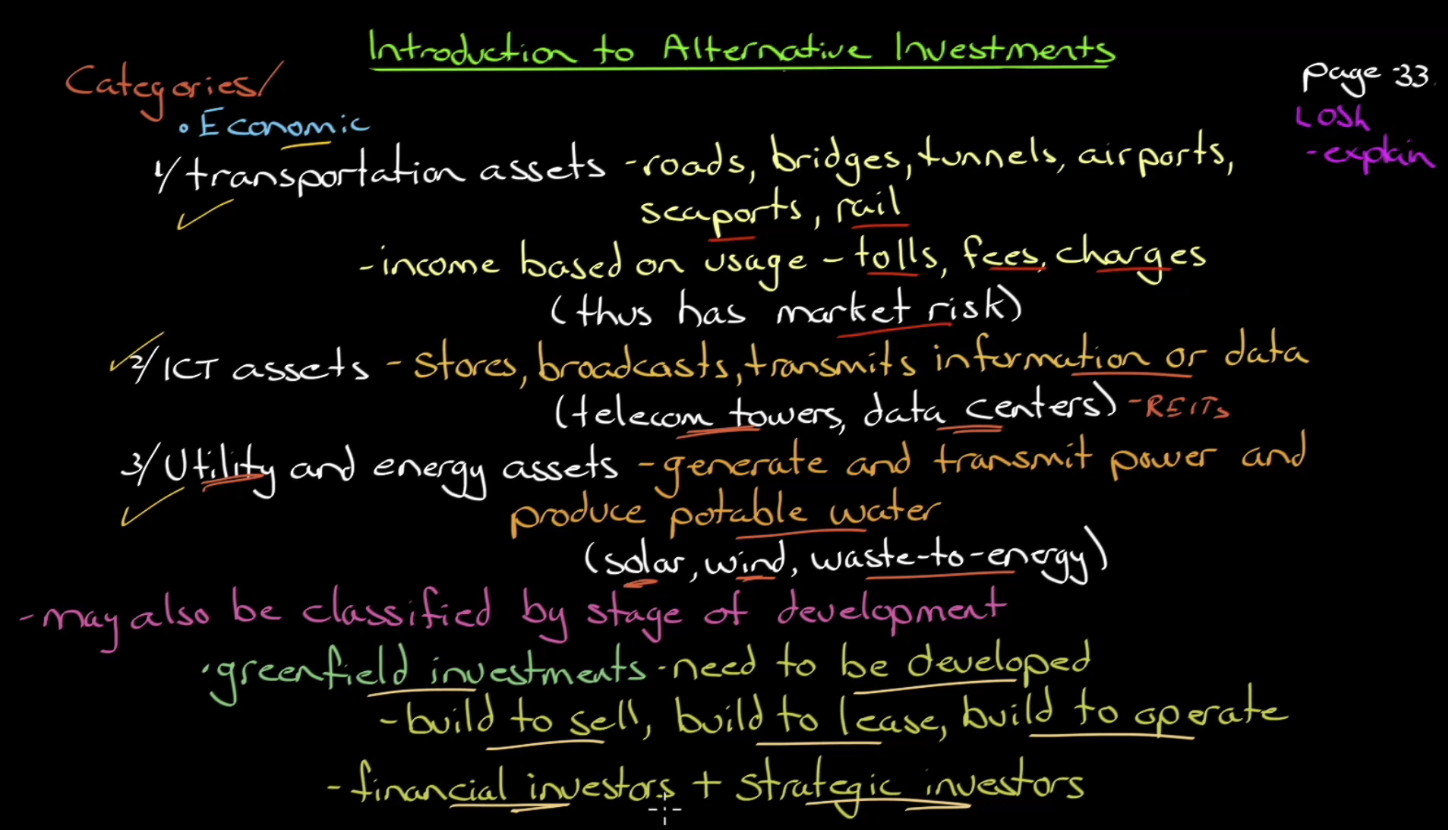 Introduction to Alternative Investments
Categories/
page 33
• Economic
LOS h
- explain
1/ transportation assets - roads, bridges, tunnels, airports,
seaports, rail
- income based on usage - tolls, fees, charges
(thus has market risk)
2/ ICT assets - stores, broadcasts, transmits information or data
(telecom towers, data centers) - REITs
3/ Utility and energy assets - generate and transmit power and
produce potable water
(solar, wind, waste-to-energy)
- may also be classified by stage of development
• greenfield investments - need to be developed
- build to sell, build to lease, build to operate
- financial investors + strategic investors